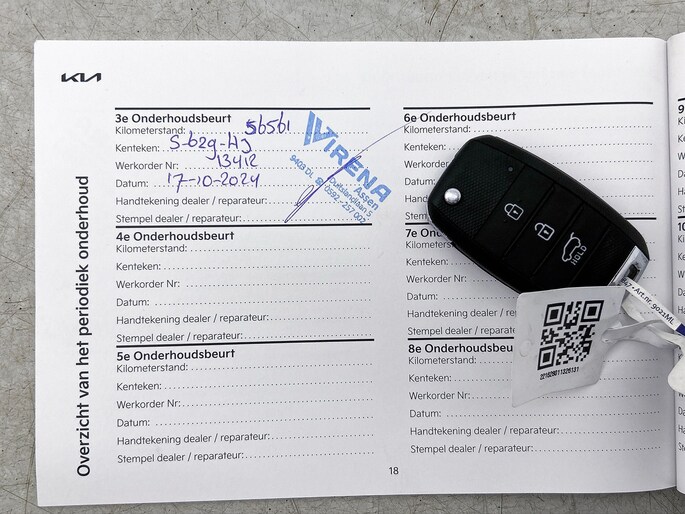 KIA
Overzicht van het periodiek onderhoud
3e Onderhoudsbeurt
Kilometerstand: 56561
Kenteken: S-629-HJ
Werkorder Nr: 13412
Datum: 17-10-2024
Handtekening dealer / reparateur:
Stempel dealer / reparateur:
VIRENA
Assen
Duitslandlaan 5
9403 DL
0592-257002
4e Onderhoudsbeurt
Kilometerstand:
Kenteken:
Werkorder Nr:
Datum:
Handtekening dealer / reparateur:
Stempel dealer / reparateur:
5e Onderhoudsbeurt
Kilometerstand:
Kenteken:
Werkorder Nr:
Datum:
Handtekening dealer / reparateur:
Stempel dealer / reparateur:
6e Onderhoudsbeurt
Kilometerstand:
Kenteken:
Werkorder Nr:
Datum:
Handtekening
Stempel dealer
7e On
Kilometerstand:
Kenteken:
Werkorder Nr:
Datum:
Handtekening dealer
Stempel dealer / r
8e Onderhoudsbeu
Kilometerstand:
Kenteken:
Werkorder Nr:
Datum:
Handtekening dealer / reparateur:
Stempel dealer / reparateur:
18
HOLD
Art.nr. 9021ML